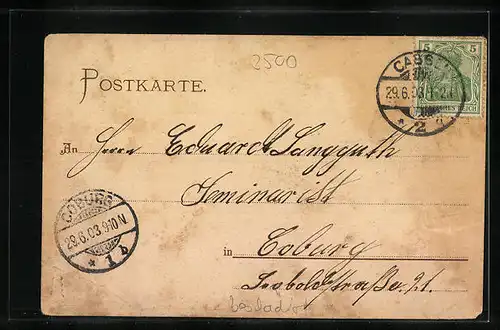 2500
POSTKARTE.
5 5
CASSEL
29.6.03.
* 2
An Herrn Eduard Langguth
Seminarist
in Coburg
Leopoldstraße 21.
COBURG
29.6.03.9-10N
* 1 b